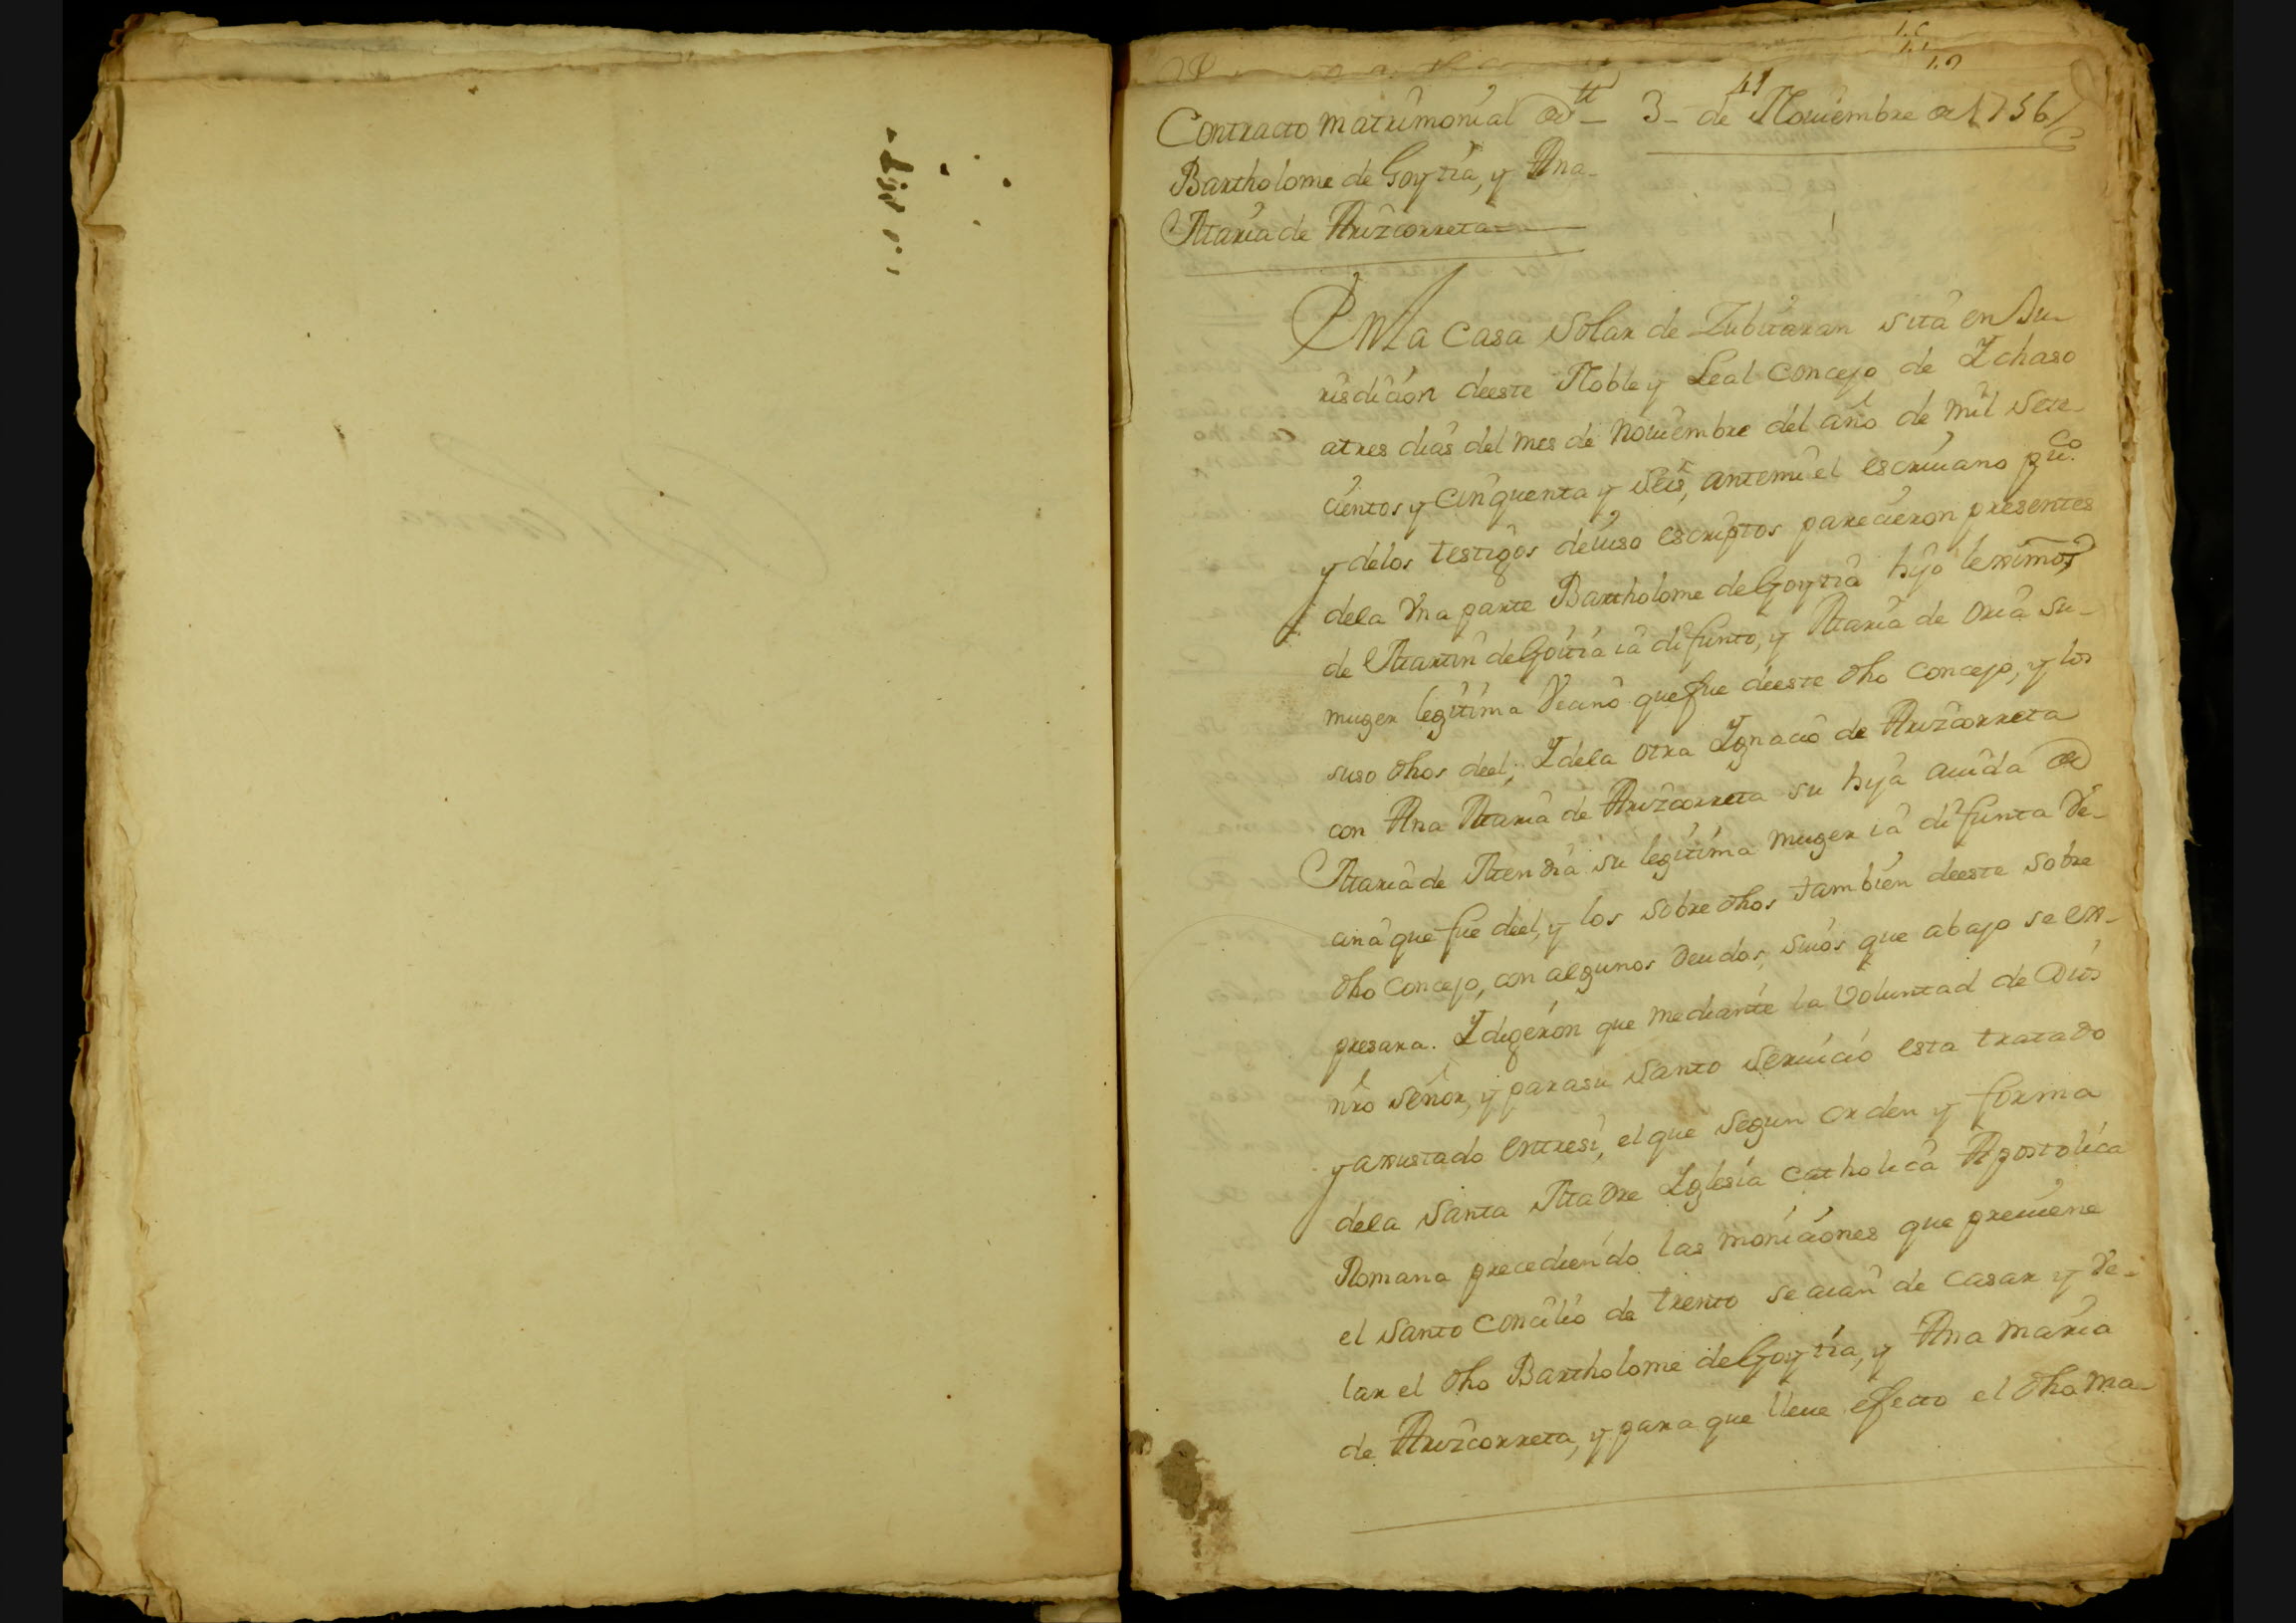 41
Contracto matrimonial de 3 de Nouiembre de 1756
Bartholome de Goytia, y Ana
Maria de Arizcorreta
En la Casa Solar de Zubitaran sita en Ju-
risdicion deeste Noble y Leal Concejo de Ichaso
atres dias del mes de Nouiembre del año de mil Sete
cientos y cinquenta y Seis, antemi el escriuano puco
y delos testigos deiuso escriptos parecieron presentes
dela Vna parte Bartholome de Goytia hijo lexitimo
de Martin de Goitia ia difunto, y Maria de Oria su
muger legitima Vecino que fue deeste dho Concejo, y los
suso dhos deel; I dela otra Ignacio de Arizcorreta
con Ana Maria de Arizcorreta su hija auida de
Maria de Mendia su legitima muger ia difunta Ve-
cina que fue deel, y los sobre dhos tambien deeste sobre
dho Concejo, con algunos deudos suios que abajo se ex-
presara. I digeron que mediante la Voluntad de Dios
nro Señor, y parasu Santo Seruicio esta tratado
y axustado entresi, el que segun orden y forma
dela Santa Madre Iglesia Catholica Apostolica
Romana precediendo las moniciones que preuiene
el Santo Concilio de Trento se aian de casar y Ve-
lar el dho Bartholome de Goytia, y Ana Maria
de Arizcorreta, y para que lleue efecto el dho ma-